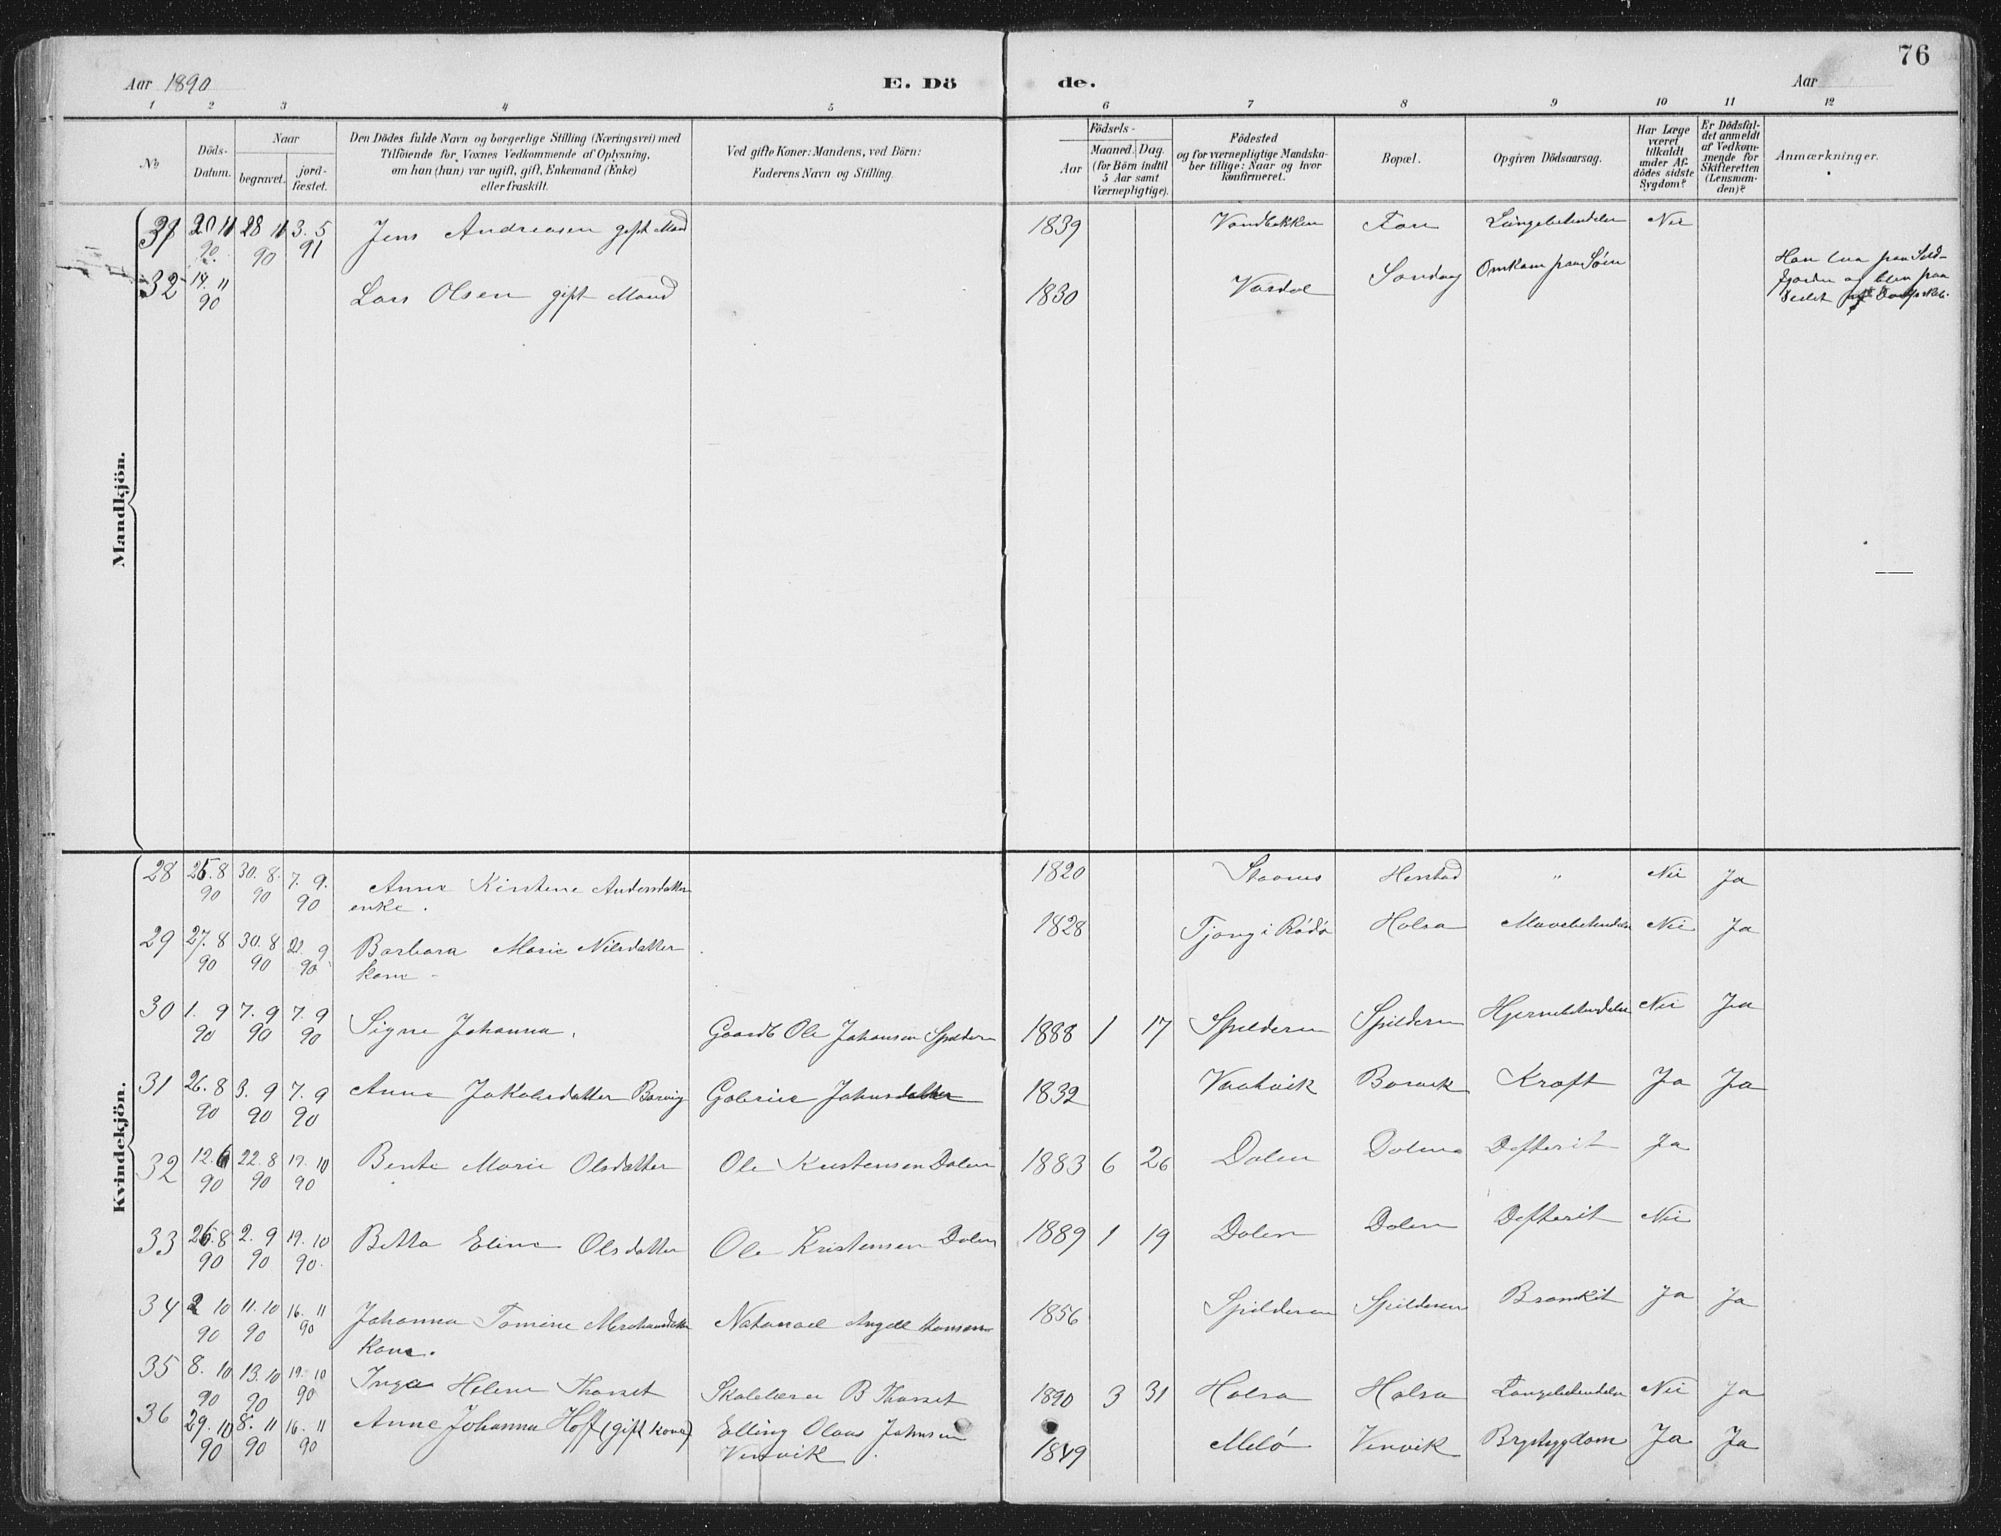 76
Aar 1890 E. Döde. Aar
1 2 3 4 5 6 7 8 9 10 11 12
No
Döds-Datum.
Naar
begravet.
jord-fæstet.
Den Dödes fulde Navn og borgerlige Stilling (Næringsvei) med
Tilföiende for Voxnes Vedkommende af Oplysning,
om han (hun) var ugift, gift, Enkemand (Enke)
eller fraskilt.
Ved gifte Koner: Mandens, ved Börn:
Faderens Navn og Stilling.
Födsels-
Aar
Maaned. Dag.
(for Börn indtil
5 Aar samt
Værnepligtige).
Födested
og for værnepligtige Mandska-
ber tillige: Naar og hvor
konfirmeret.
Bopæl.
Opgiven Dödsaarsag.
Har Læge
været
tilkaldt
under Af-
dödes sidste
Sygdom?
Er Dödsfal-
det anmeldt
af Vedkom-
mende for
Skifteretten
(Lensman-
den)?
Anmærkninger.
Mandkjön.
31 20 11 90 28 11 90 3. 5 91 Jens Andreasen gift Mand 1839 Vandbakken Lungebetændelse Nei
32 14. 11 90 Lars Olsen gift Mand 1830 Omkom paa Söen
Kvindekjön.
28 25. 8 90 30. 8. 90 7. 9. 90 Anne Kirstine Andersdatter 1820 " Nei Ja
enke.
29 27. 8 90 30. 8 90 21. 9 90 Barbara Marie Nilsdatter 1828 Tjong i Rödö Halsa Mavebetændelse Nei Ja
kone
30 1. 9 90 7. 9 90 7. 9 90 Signe Johanna. Gaardb Ole Johansen Spilderen 1888 1 17 Spilderen Spilderen Hjernebetændelse Nei Ja
31 26. 8 90 3. 9 90 7. 9 90 Anne Jakobsdatter 1832 Kræft Ja Ja
32 12. 6 90 22. 8 90 19. 10 90 Bente Marie Olsdatter Ole Kristensen Dalen 1883 6 26 Dalen Dalen Defterit Ja
33 26. 8 90 2. 9 90 19. 10 90 Betta Eline Olsdatter Ole Kristensen Dalen 1889 1 19 Dalen Dalen Defterit Nei
34 2 10 90 11. 10 90 16. 11 90 Johanna Tomine Natanael Angell Hansen 1856 Spilderen Spilderen Bronkit Ja Ja
kone.
35 8. 10 90 13. 10 90 19. 10 90 Inga Helene Skolelærer B 1890 3 31 Halsa Halsa Lungebetændelse Nei Ja
36 29. 10 90 8. 11 90 16. 11 90 Anne Johanna Hoff (gift kone) Elling Olaus Johnsen 1849 Melö Venvik Brystsygdom Ja Ja
Venvik.